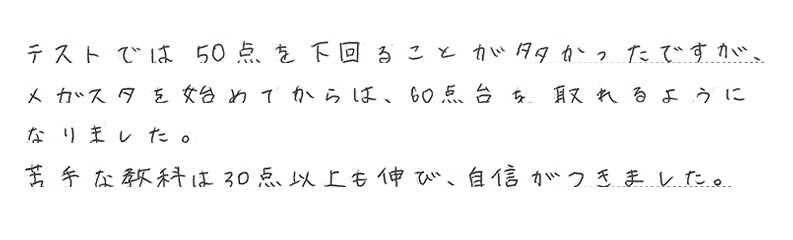 テストでは50点を下回ることが多かったですが、
メガスタを始めてからは、60点台を取れるように
なりました。
苦手な教科は30点以上も伸び、自信がつきました。